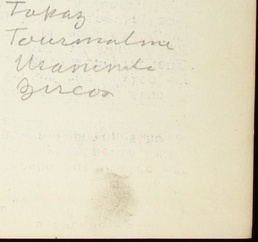 Topaz
Tourmaline
Uraninite
Zircon